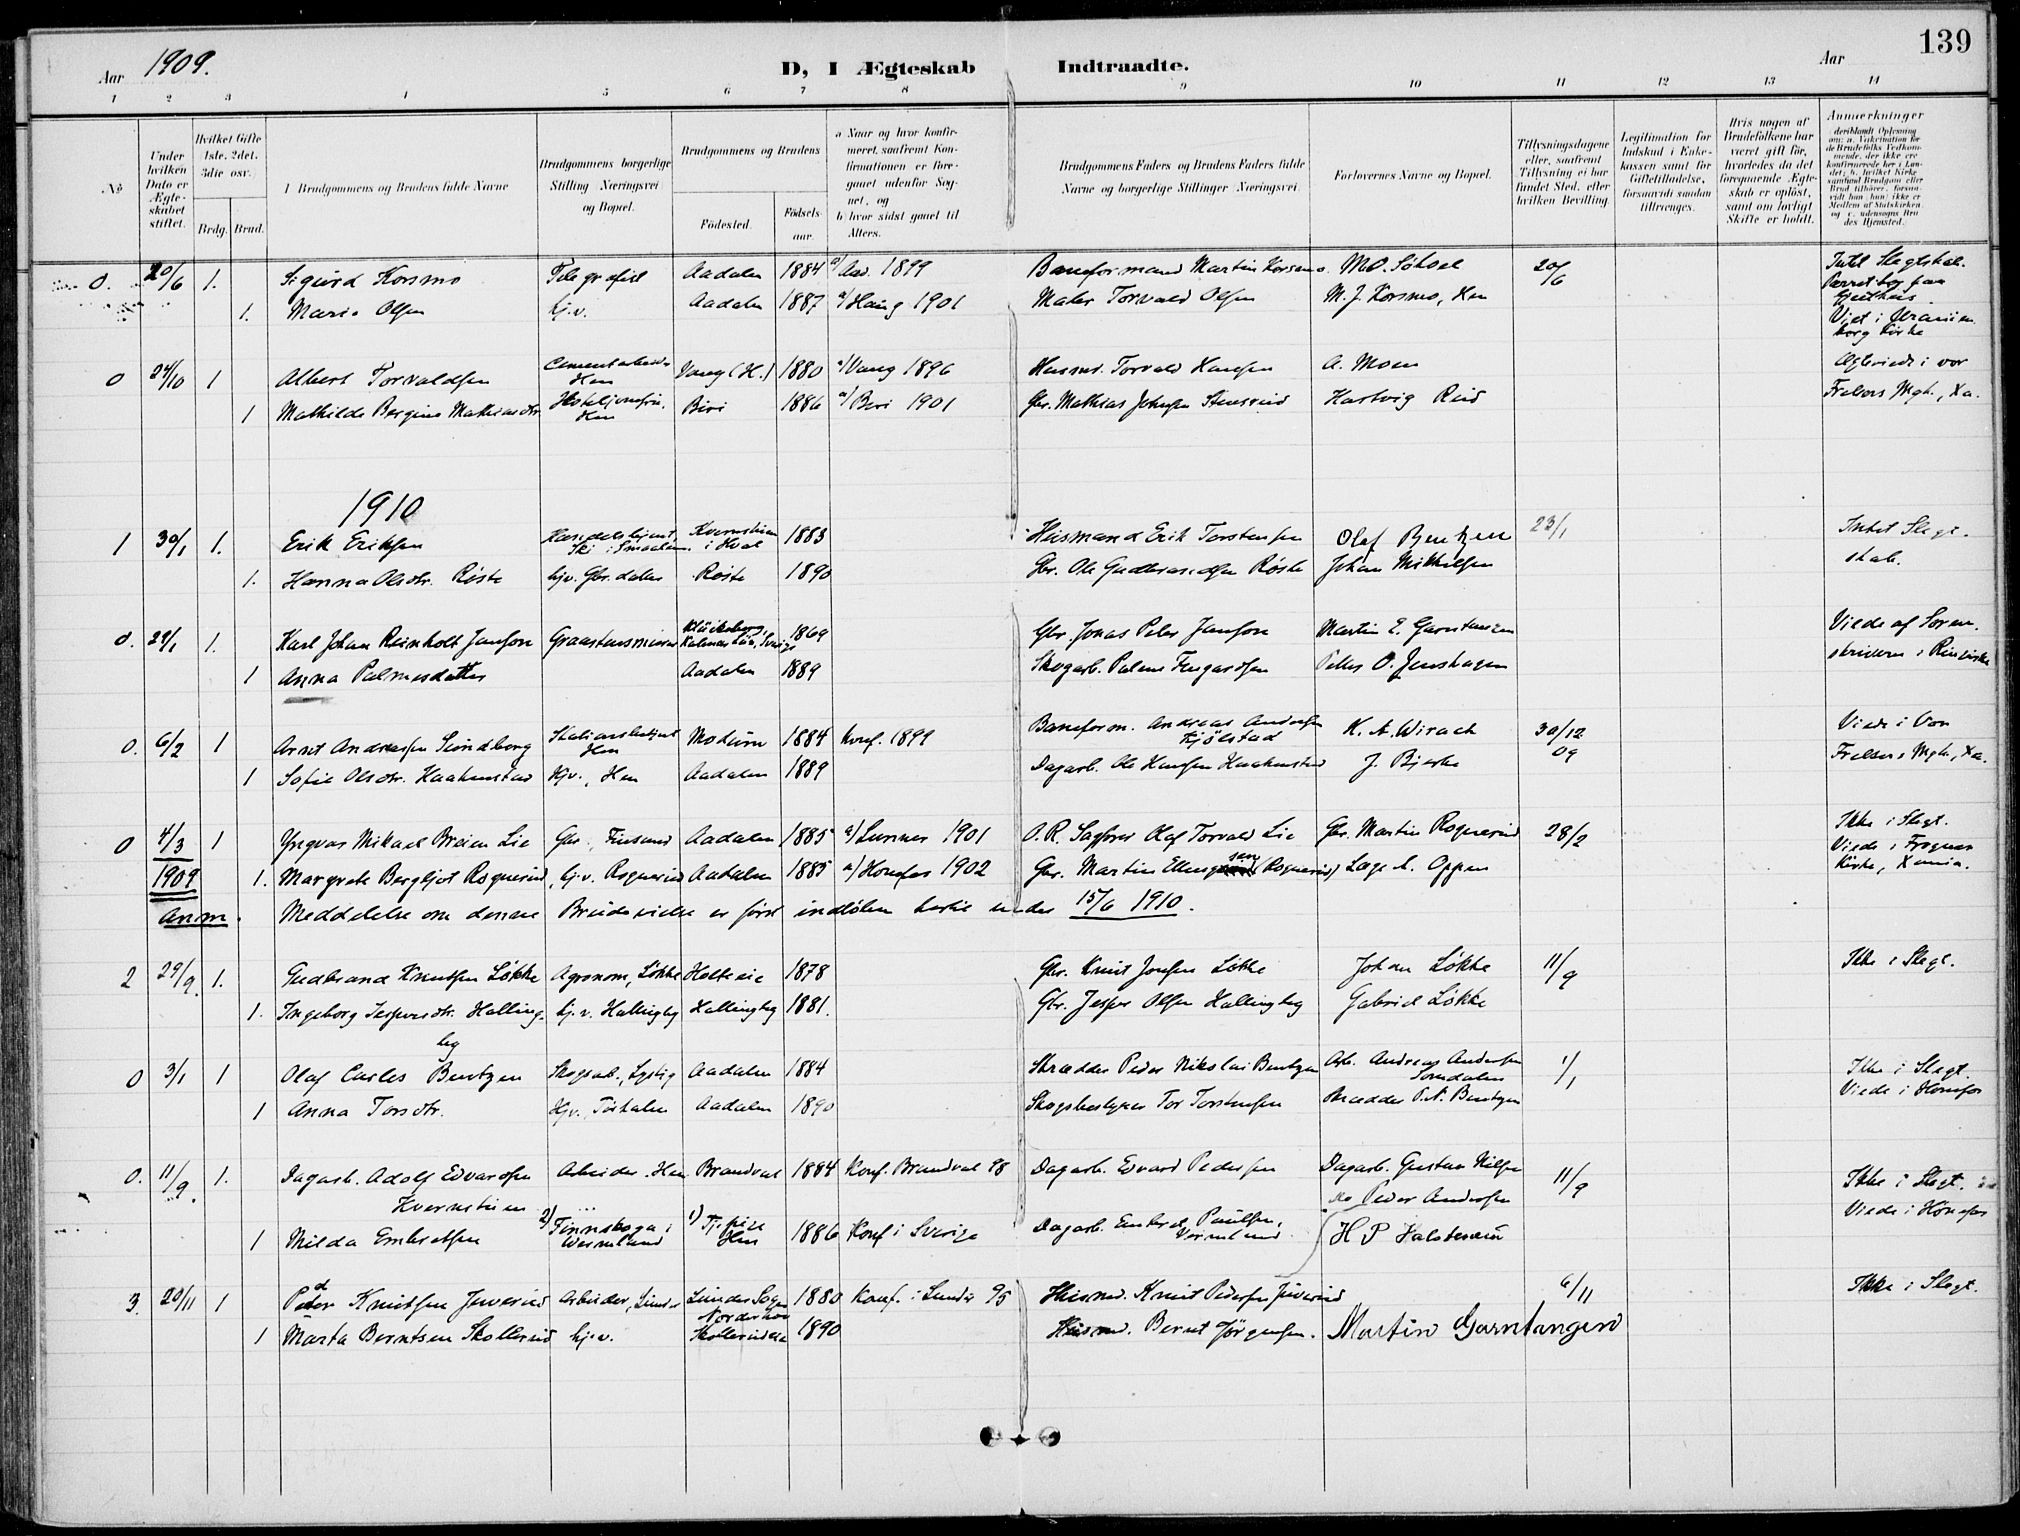 139
Aar 1909.
D, I Ægteskab Indtraadte.
Aar
1 2 3 4 5 6 7 8 9 10 11 12 13 14
No
Under hvilken Dato er Ægteskabet stiftet.
Hvilket Gifte 1ste, 2det, 3die osv.
Brdg. Brud.
Brudgommens og Brudens fulde Navne
Brudgommens borgerlige Stilling Næringsvei og Bopæl.
Brudgommens og Brudens
Fødested.
Fødselsaar.
a Naar og hvor konfirmeret, saafremt Konfirmationen er foregaaet udenfor Sognet, og
b hvor sidst gaaet til Alters.
Brudgommens Faders og Brudens Faders fulde Navne og borgerlige Stillinger Næringsvei.
Forlovernes Navne og Bopæl.
Tillysningsdagene eller, saafremt Tillysning ei har fundet Sted, efter hvilken Bevilling.
Legitimation for Indskud i Enkekassen samt for Giftetilladelse, forsaavidt saadan tiltrænges.
Hvis nogen af Brudefolkene har været gift før, hvorledes da det foregaaende Ægteskab er opløst, samt om lovligt Skifte er holdt.
Anmærkninger
0. 20/6 1. Sigurd Korsmo Telegrafist Aadalen 1884 a) Aad. 1899 Baneformand Martin Korsmo. M.O. Sohoel 20/6 Intet Slegtskab.
1. Marie Olsen hj.v. Aadalen 1887 a) Haug 1901 Maler Torvald Olsen M. J. Korsmo, Hen
Viet i Uranienborg Kirke
0 24/10 1 Albert Torvaldsen Cementarbeider Hen Vang (H.) 1880 a) Vang 1896 Husmd. Torvald Hansen A. Moen Ægteviede i vor
1 Mathilde Bergine Mathiasdtr. Hen Biri 1886 a) Biri 1901 Gbr. Mathias Johnsen Hartvig Rud Frelsers Mgh., Xa.
1910
1 30/1 1. Erik Eriksen Handelsbetjent, Ski i Smaalen. Kvernstuen i Hval 1883 Husmand Erik Torstensen Olaf Bentzen 23/1 Intet Slegtskab.
1. Hanna Olsdtr. Røste hjv. Gbr. datter Røste 1890 Gbr. Ole Gudbrandsen Røste Johan Mikkelsen
0. 29/1 1. Karl Johan Reinholt Jansson Graastensmurer Kalmar Län, Sverige 1869 Gbr. Jonas Peter Jansson Martin E. Garntangen Viede af Sorenskriveren i Ringerike
1 Anna Palmesdatter Aadalen 1889 Skogarb. Palme Peder O. Jenshagen
0. 6/2 1 Arnt Andreassen Sundberg Stationsbetjent Hen Modum 1884 Konf. 1899 Baneform. Andreas Andersen Kjølstad K. A. Wirach 30/12 09 Viede i Vor
1 Sofie Olsdtr. Haakenstad Hjv., Hen Aadalen 1889 Dagarb. Ole Hansen Haakenstad J. Bjerke Frelsers Mgh., Xa.
0 4/3 1909 1 Yngvar Mikael Breien Lie Gbr., Finsand Aadalen 1885 a) Lunner 1901 O.R. Sagfører Olaf Torvald Lie Gbr. Martin Rognerud 28/2 Ikke i Slegt.
1. Margrete Bergljot Rognerud, hj.v. Rognerud Aadalen 1885 a) Honefos 1902 Gbr. Martin Ellingsen (Rognerud) Lage A. Oppen Viede i Frogner Kirke, Xania.
Anm. Meddelelse om denne Brudevielse er først indløben hertil under 15/6 1910.
2 29/9. 1. Gudbrand Knutsen Løkke Agronom, Løkke Holteeie 1878 Gbr. Knut Jonsen Løkke Johan Løkke 11/9 Ikke i Slegt.
1. Ingeborg Jespersdtr. Hallingby hj.v. Hallingby Hallingby 1881. Gbr. Jesper Olsen Hallingby Gabriel Løkke
0 3/1 1 Olaf Carles Bentzen Skogsarb., Lystig Aadalen 1884 Skrædder Peder Nikolai Bentzen Arb. Andreas Andersen 1/1 Ikke i Slegt.
1 Anna Torsdtr. Hjv., Aadalen 1890 Skogsbestyrer Tor Torstensen Skrædder P.N. Bentzen Viede i Honefos
0. 11/9. 1. Dagarb. Adolf Edvardsen Kvernstuen Arbeider. Hen Brandval 1884 Konf. Brandval 98 Dagarb. Edvard Pedersen Dagarb. Gustav Nilsen 11/9 Ikke i Slegt.
do Peder Andersen Viede i Hønefos
1 Milda Embretsen 2) Finnskoga i Wermland 1) Tj.pige Hen 1886 Konf i Sverige Dagarb. Embret Paulsen, Vermland H P Halstensen
3. 20/11 1 Peder Knutsen Juverud Arbeider, Lunder Lunder Sogn Norderhov 1880 Konf. i Lunder 95 Husmd. Knut Pedersen Juverud 6/11 Ikke i Slegt.
1 Marta Berntsen Skollerud hj.v. Skollerudeie 1890 Husmd. Bernt Jørgensen. Martin Garntangen